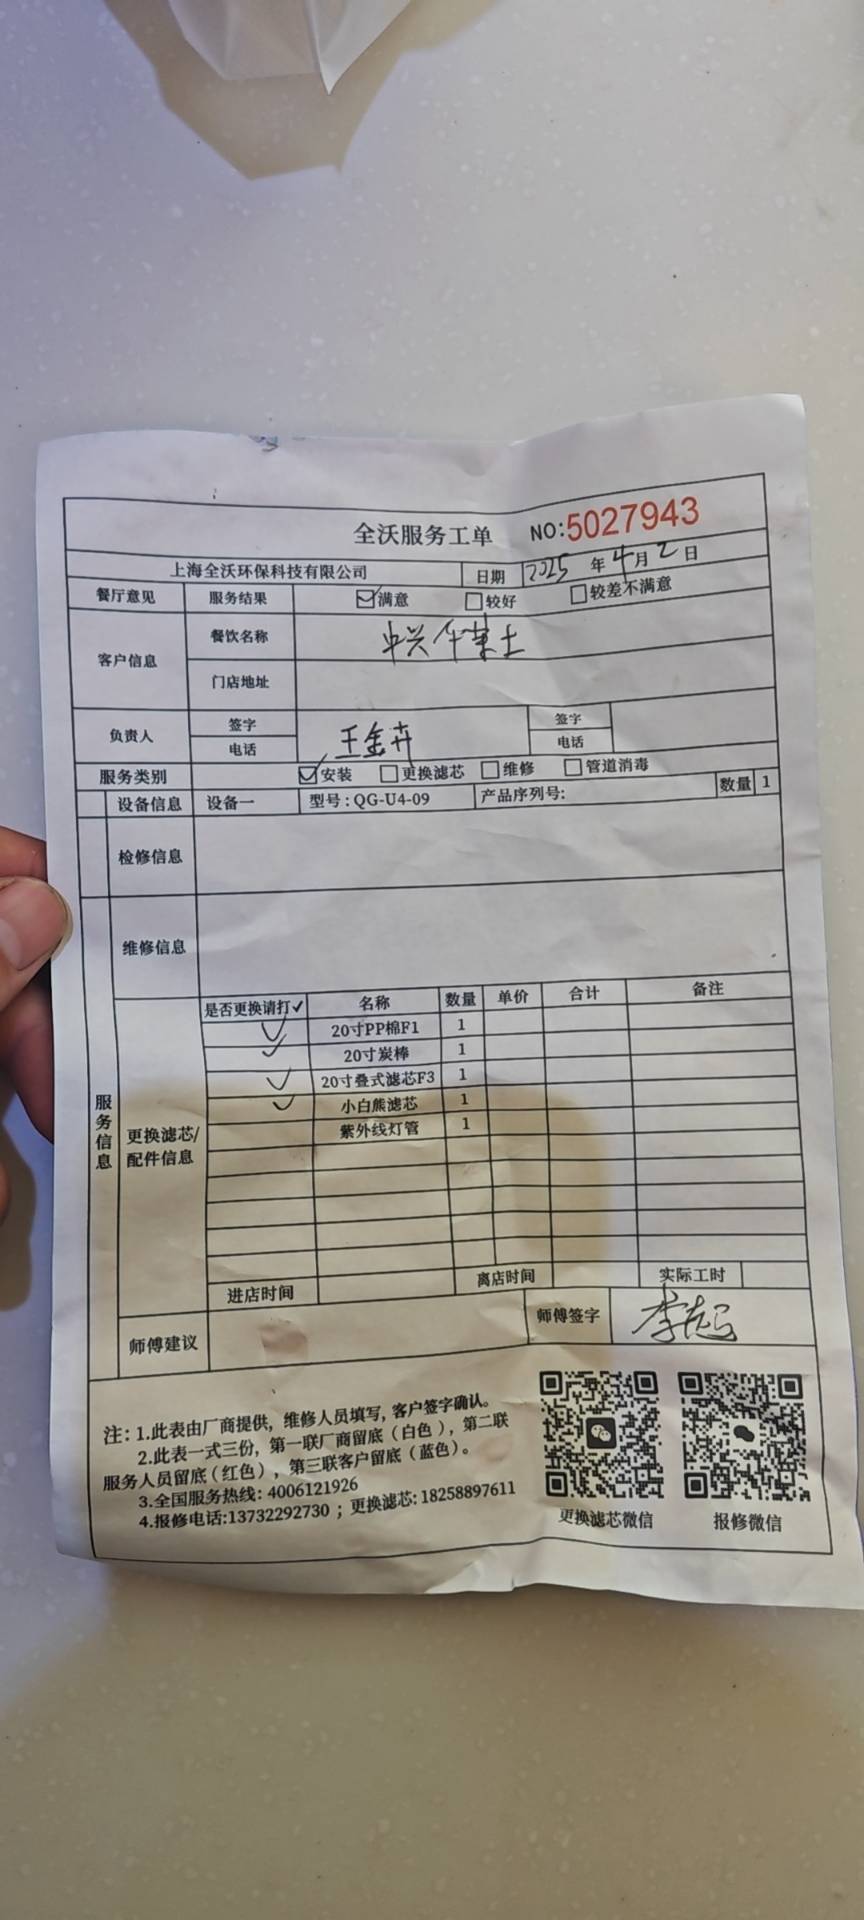 全沃服务工单 NO:5027943
上海全沃环保科技有限公司 日期 2025 年 4 月 2 日
餐厅意见 服务结果 满意 较好 较差不满意
客户信息 餐饮名称
门店地址
负责人 签字 王金卉 签字
电话 电话
服务类别 安装 更换滤芯 维修 管道消毒
设备信息 设备一 型号：QG-U4-09 产品序列号: 数量 1
检修信息
维修信息
服务信息
更换滤芯/
配件信息
是否更换请打✓ 名称 数量 单价 合计 备注
✓ 20寸PP棉F1 1
✓ 20寸炭棒 1
✓ 20寸叠式滤芯F3 1
✓ 小白熊滤芯 1
紫外线灯管 1
进店时间 离店时间 实际工时
师傅建议 师傅签字
注：1.此表由厂商提供，维修人员填写，客户签字确认。
2.此表一式三份，第一联厂商留底（白色），第二联
服务人员留底（红色），第三联客户留底（蓝色）。
3.全国服务热线：4006121926
4.报修电话:13732292730 ；更换滤芯：18258897611
更换滤芯微信 报修微信